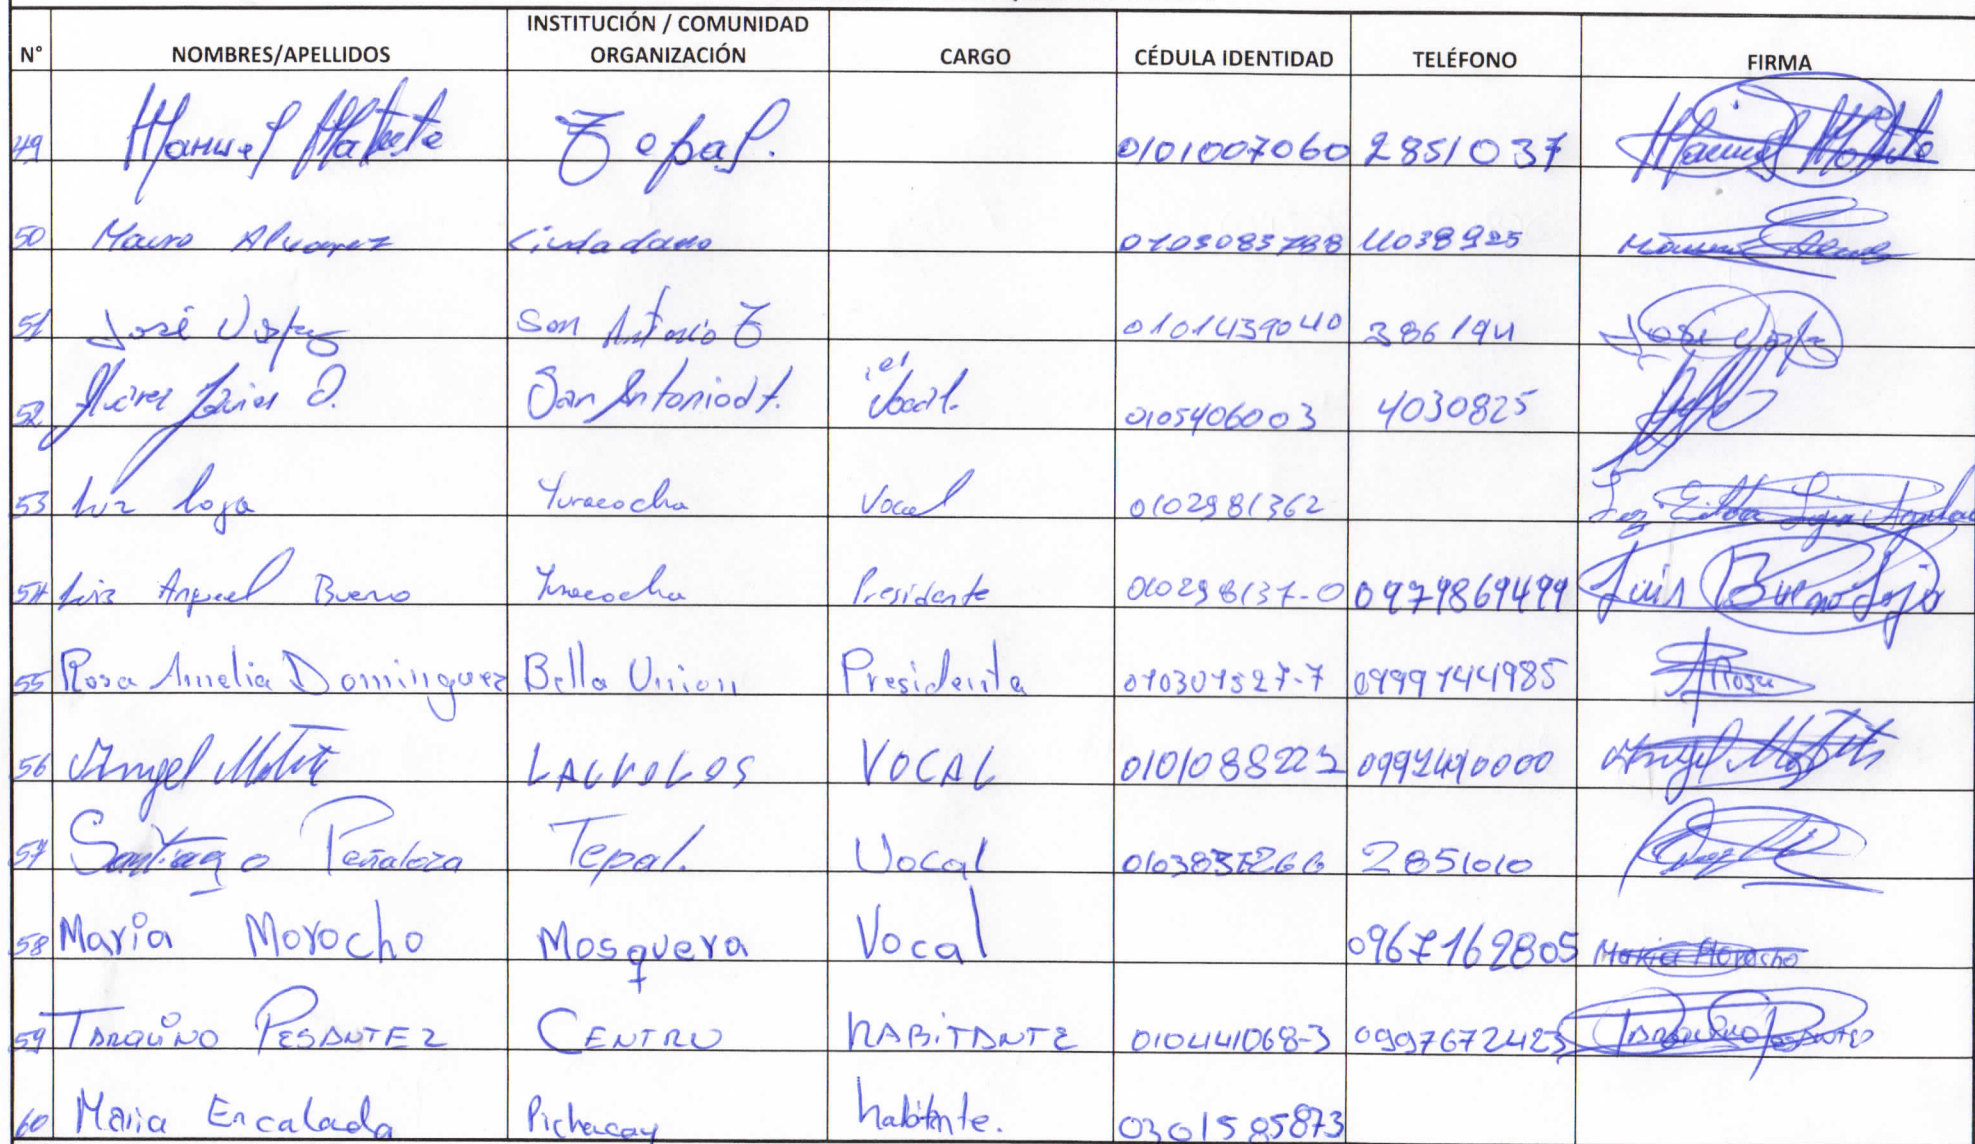 INSTITUCIÓN / COMUNIDAD
N° NOMBRES/APELLIDOS ORGANIZACIÓN CARGO CÉDULA IDENTIDAD TELÉFONO FIRMA
49 Manuel Matute Tepal. 0101007060 2851037 Manuel Matute
50 Mauro Alvarez Ciudadano 4038925
51 José López San Antonio T 0101439040
52 Javier O. San Antonio d t. 1er Vocal. 0105406003 4030825
53 Luz Loja Yuracocha Vocal 0102981362
54 Luis Angel Bueno Yuracocha Presidente 010298137-0 0979869499 Luis Bueno Loja
55 Rosa Amelia Dominguez Bella Union Presidenta 010301527-7 0999144985 Rosa
56 Angel Matute VOCAL Angel Matute
57 Santiago Peñaloza Tepal. Vocal 2851010
58 Maria Morocho Mosquera Vocal 0967169805 Maria Morocho
59 TARQUINO PESANTEZ CENTRO HABITANTE 010441068-3 0997672423 TARQUINO PESANTEZ
60 Maria Encalada Pichacay habitante. 0301585873